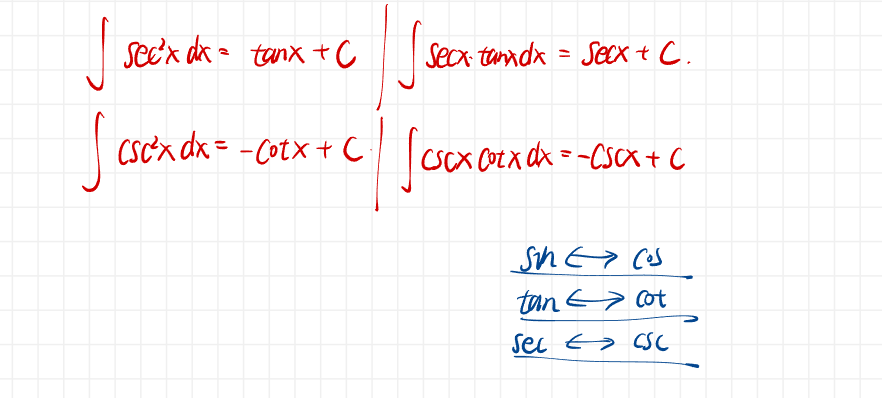 ∫ sec²x dx = tanx + C | ∫ secx·tanxdx = secx + C.
∫ csc²x dx = -cotx + C. | ∫ cscx cotx dx = -cscx + C
sin ⟷ cos
tan ⟷ cot
sec ⟷ csc